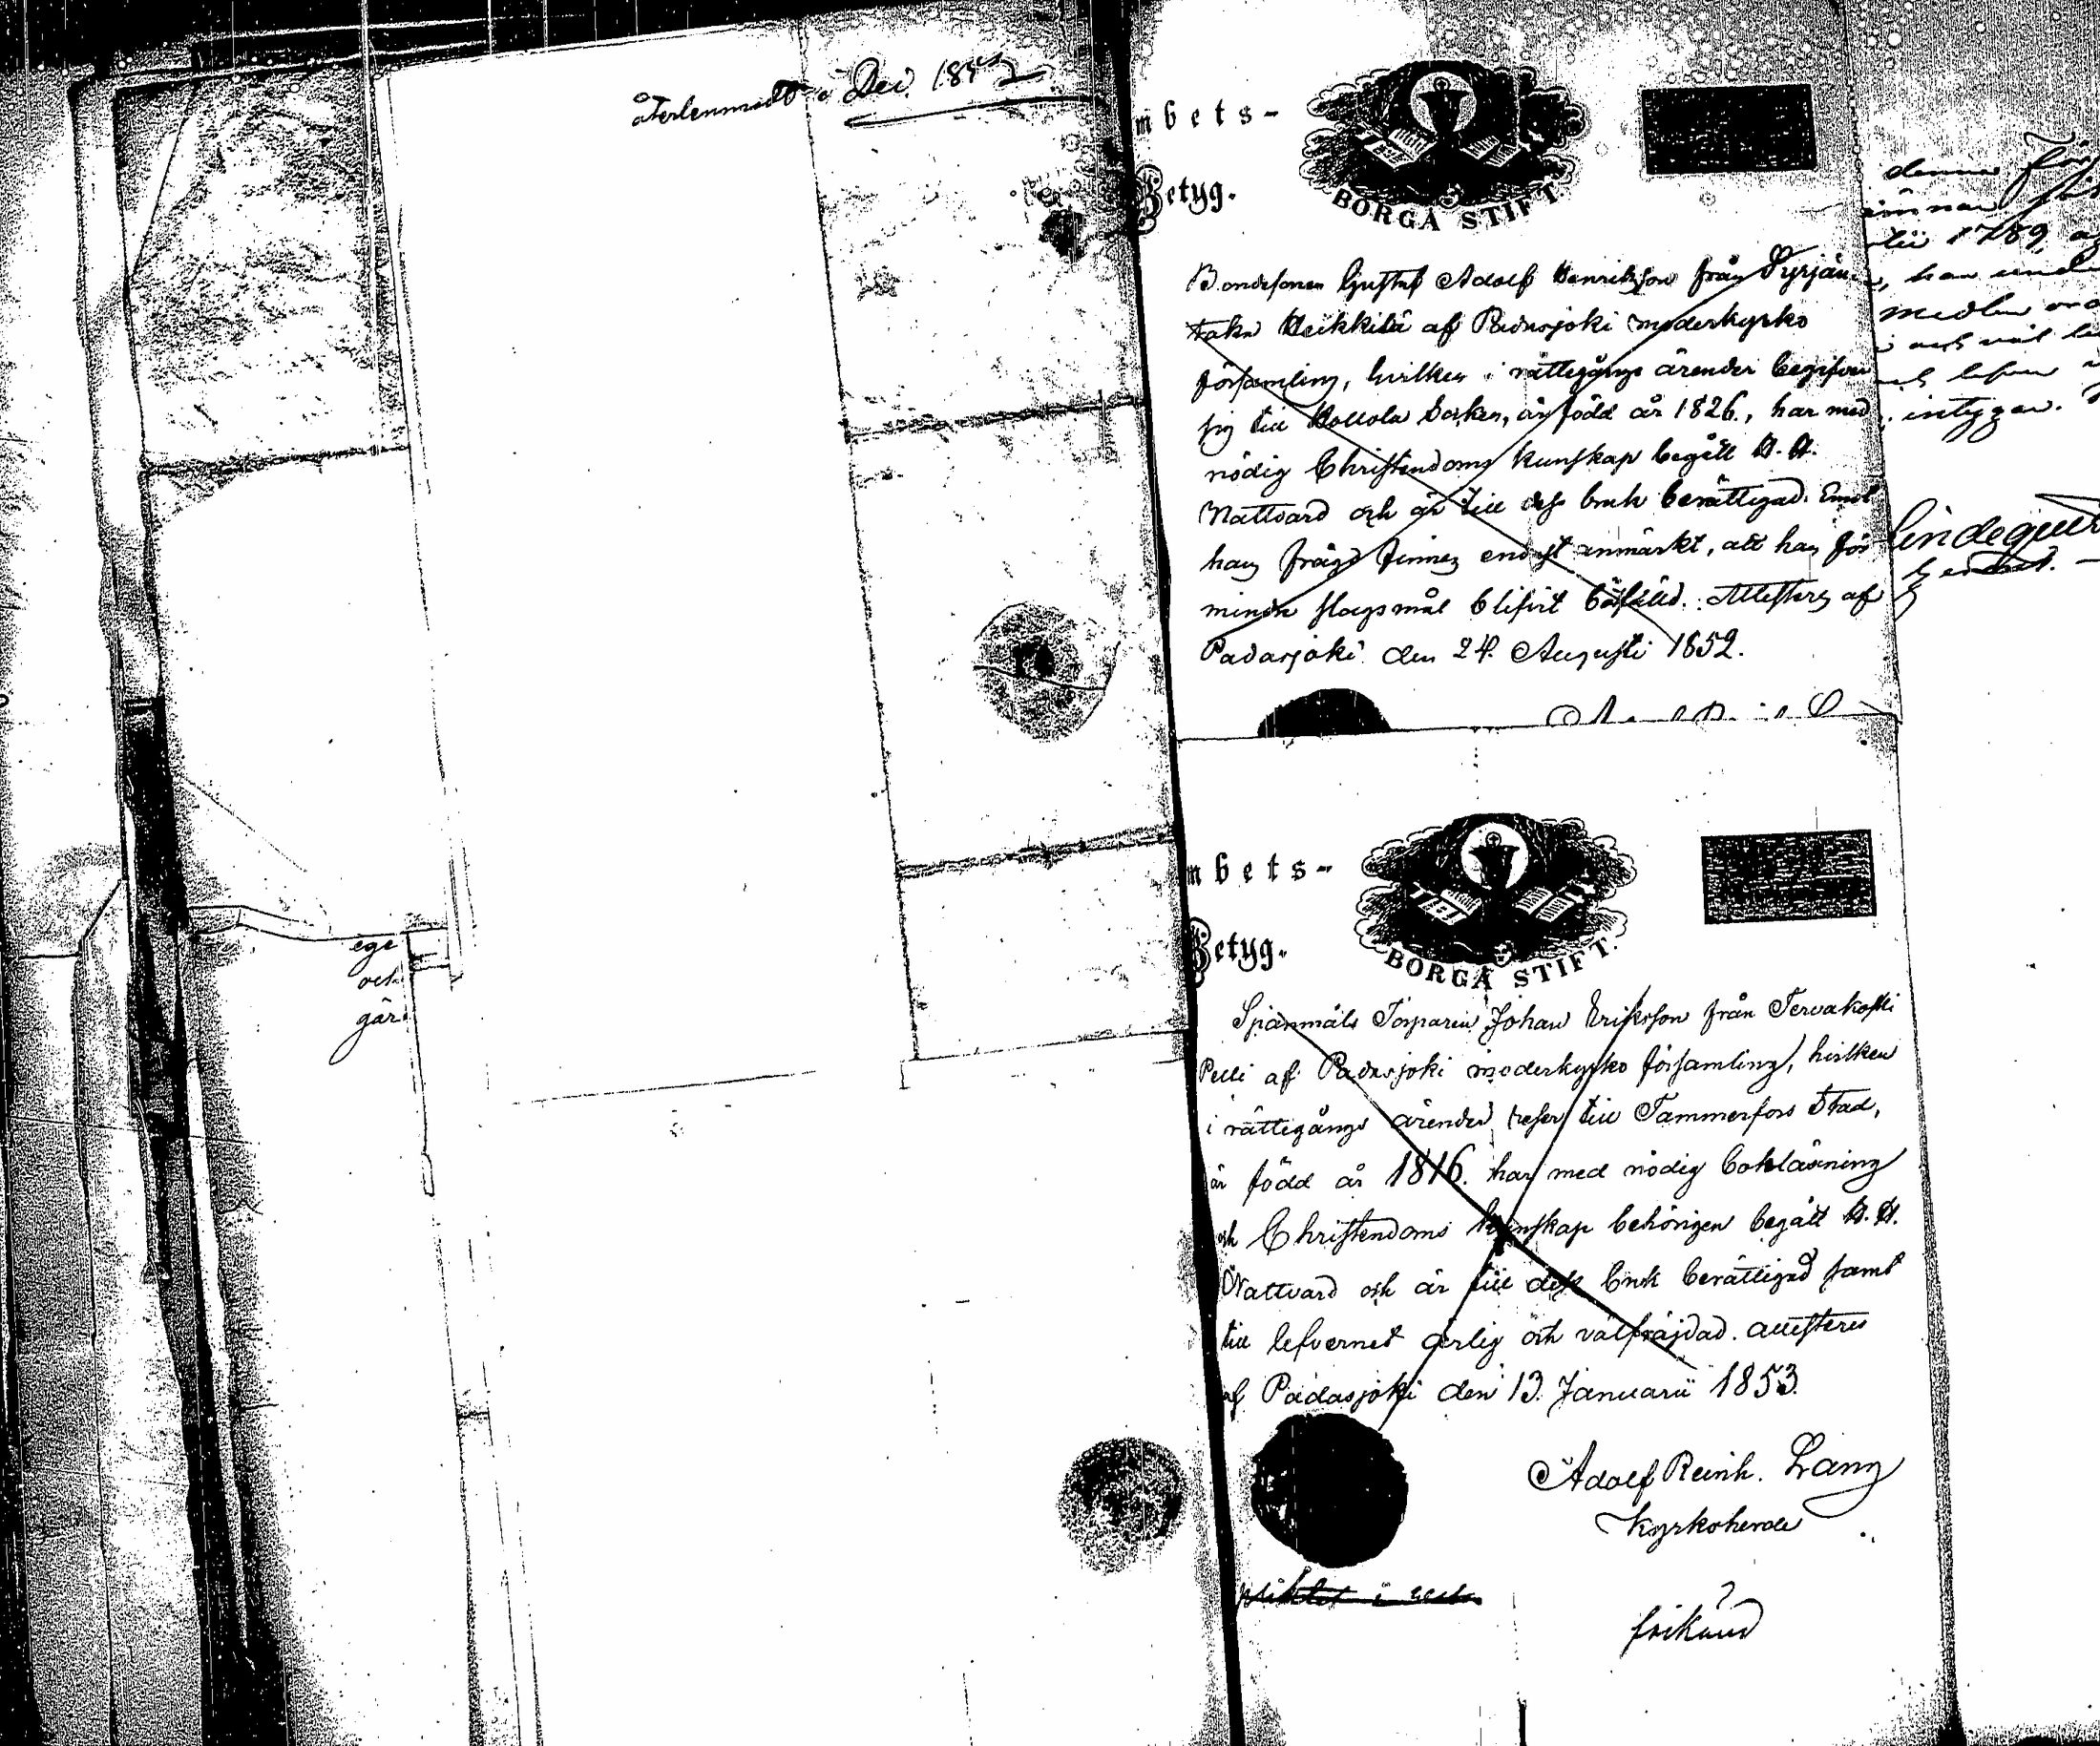 återlemnadt i Dec. 1852
ege
och
går
mbets-
Betyg.
BORGÅ STIFT.
Bondesonen Gustaf Adolf Henriksson från Syrjän-
taka Heikkilä af Padasjoki moderkyrko
församling, hvilken i rättegångs ärender begifver
sig till Hollola Socken, är född år 1826., har med
nödig Christendoms kunskap begått H. H.
Nattvard och är till dess bruk berättigad. Emot
hans fräjd finnes endast anmärkt, att han för
mindre slagsmål blifvit bötfälld. Attesteras af
Padasjoki den 24. Augusti 1852.
denna
1789
han
medlem
och väl
intygar.
Lindequist
mbets-
Betyg.
BORGÅ STIFT.
Spanmåls Torparen Johan Eriksson från Tervakoski
Pelli af Padasjoki moderkyrko församling, hvilken
i rättegångs ärender reser till Tammerfors Stad,
är född år 1816. har med nödig bokläsning
och Christendoms kunskap behörigen begått H. H.
Nattvard och är till dess bruk berättigad samt
till lefvernet ärlig och välfräjdad. attesteras
af Padasjoki den 13. Januarii 1853.
Adolf Reinh. Lang
Kyrkoherde
frikänd